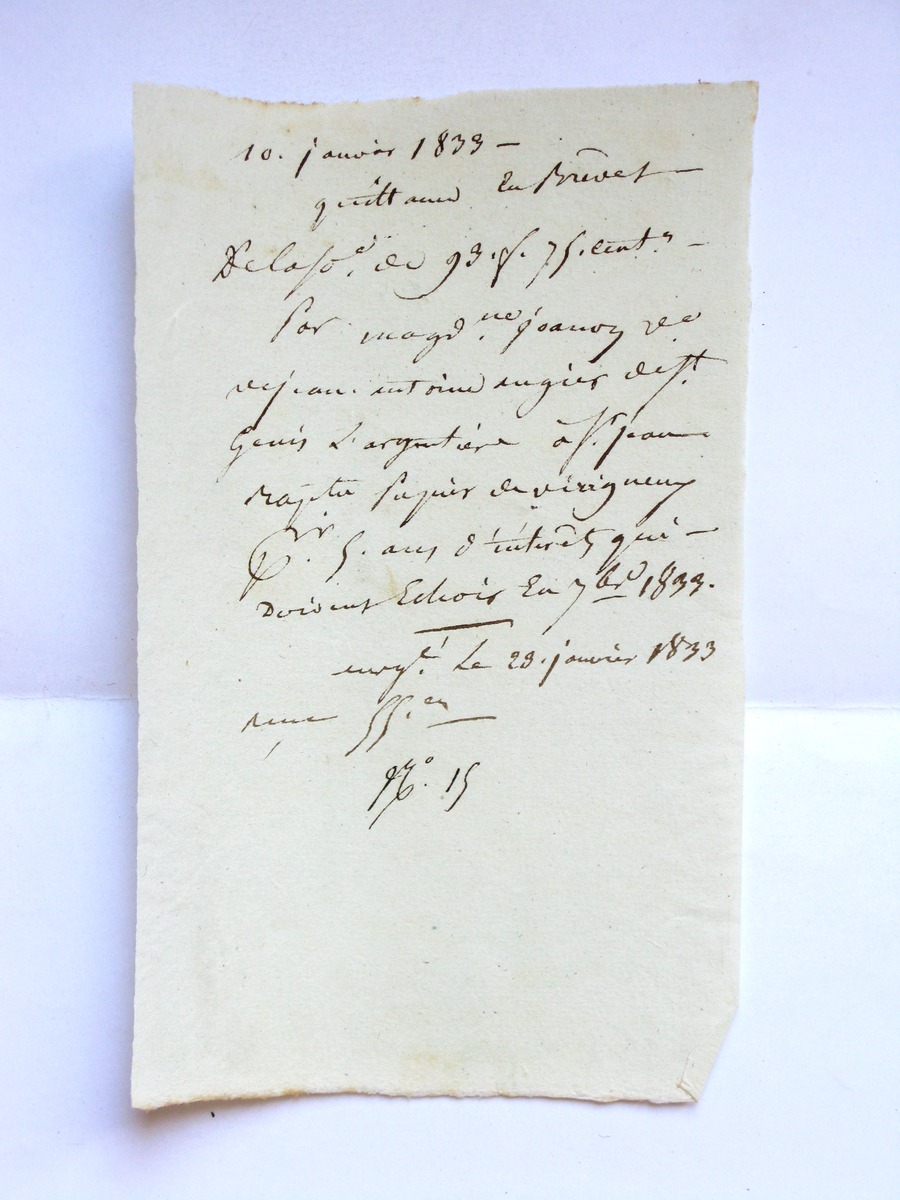 10. janvier 1833 —
quittance En Brevet —
De la so.e de 93. f. 75. cent.s —
Par magd.ne joanon ve
de jean. antoine augier de st
Genis L'argentière à St. jean
Bapte Pupier de virigneux
Pr. 5. ans d'intérêts qui —
Doivent Echoir En 7bre 1833.
enreg.é Le 23. janvier 1833
55. cn
N.o 15